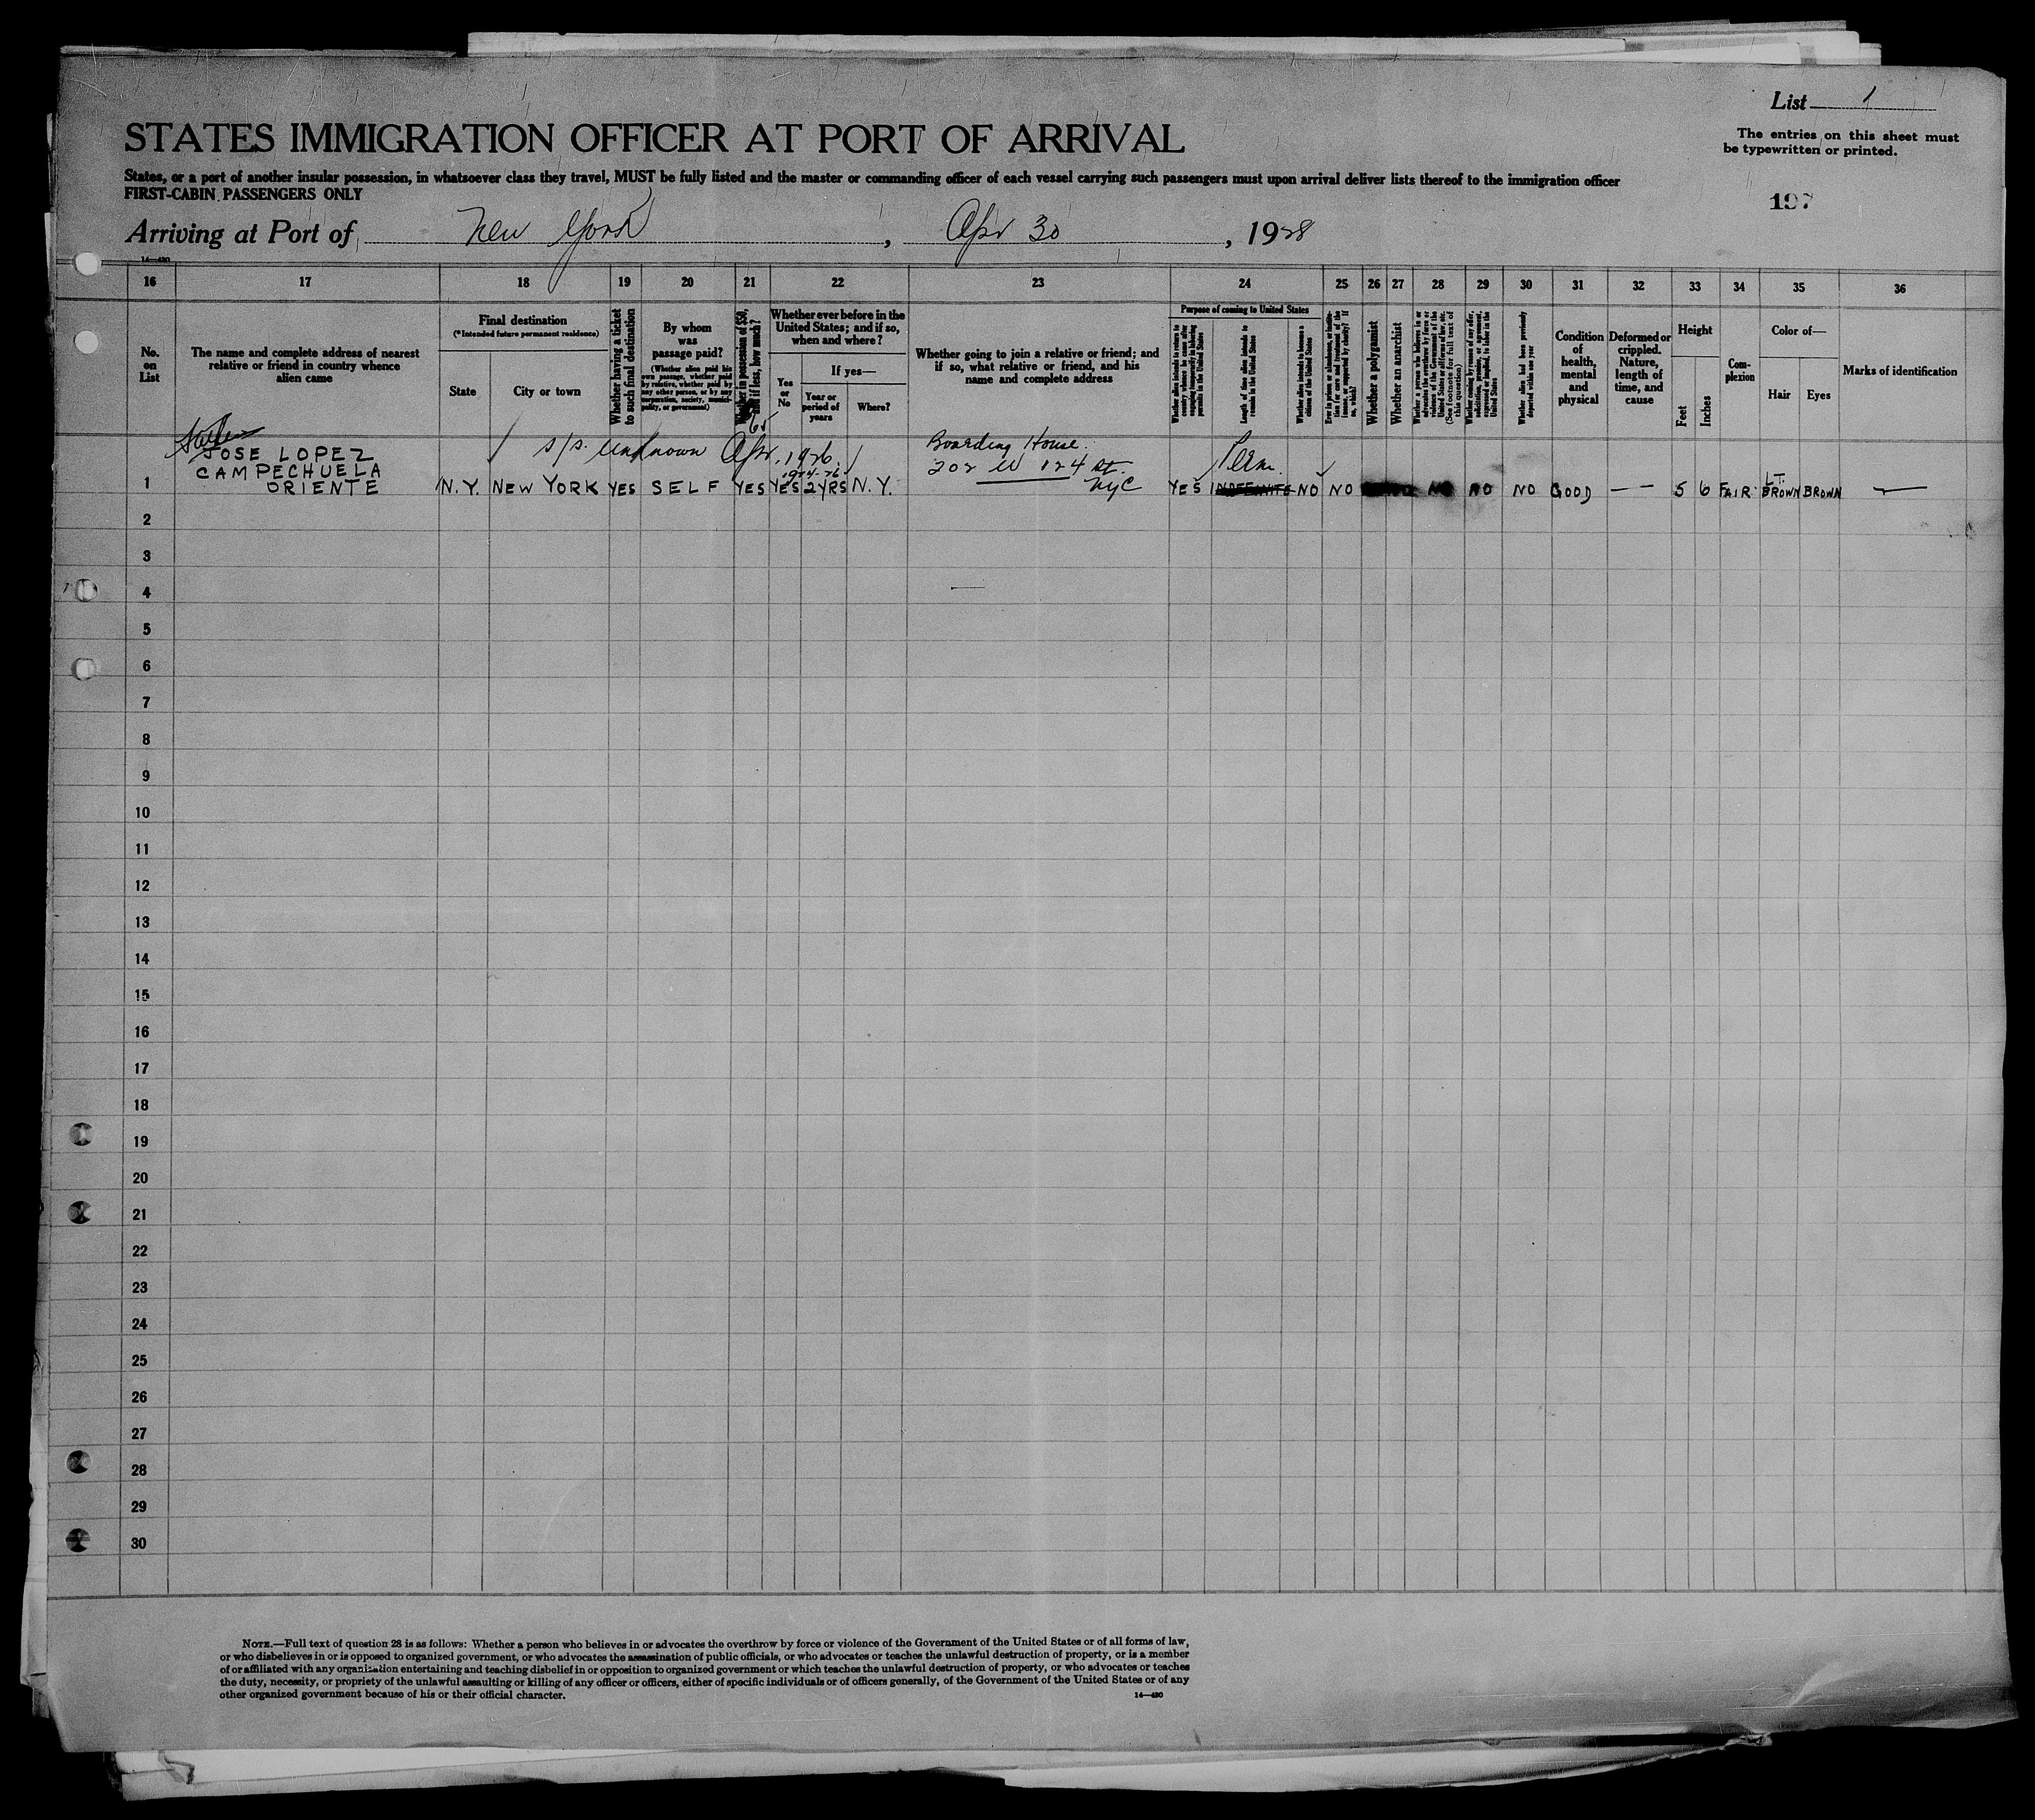 List 1
The entries on this sheet must
be typewritten or printed.
STATES IMMIGRATION OFFICER AT PORT OF ARRIVAL
States, or a port of another insular possession, in whatsoever class they travel, MUST be fully listed and the master or commanding officer of each vessel carrying such passengers must upon arrival deliver lists thereof to the immigration officer
FIRST-CABIN PASSENGERS ONLY
197
Arriving at Port of New York, Apr 30, 1928
14—420
16 17 18 19 20 21 22 23 24 25 26 27 28 29 30 31 32 33 34 35 36
No. on List
The name and complete address of nearest
relative or friend in country whence
alien came
Final destination
(*Intended future permanent residence)
State
City or town
Whether having a ticket
to such final destination
By whom
was
passage paid?
(Whether alien paid his
own passage, whether paid
by relative, whether paid by
any other person, or by any
corporation, society, munici-
pality, or government)
Whether in possession of $50,
and if less, how much?
65
Whether ever before in the
United States; and if so,
when and where?
Yes
or
No
If yes—
Year or
period of
years
Where?
Whether going to join a relative or friend; and
if so, what relative or friend, and his
name and complete address
Purpose of coming to United States
Whether alien intends to return to
country whence he came after
engaging temporarily in laboring
pursuits in the United States
Length of time alien intends to
remain in the United States
Whether alien intends to become a
citizen of the United States
Ever in prison or almshouse, or institu-
tion for care and treatment of the
insane, or supported by charity? If
so, which?
Whether a polygamist
Whether an anarchist
Whether a person who believes in or
advocates the overthrow by force or
violence of the Government of the
United States or all forms of law, etc.
(See footnote for full text of
this question)
Whether coming by reason of any offer,
solicitation, promise, or agreement,
expressed or implied, to labor in the
United States
Whether alien had been previously
deported within one year
Condition
of
health,
mental
and
physical
Deformed or
crippled.
Nature,
length of
time, and
cause
Height
Feet
Inches
Com-
plexion
Color of—
Hair
Eyes
Marks of identification
s/s. unknown Apr. 1926
Boarding House
JOSE LOPEZ
CAMPECHUELA
202 W 124 St.
Perm.
1924-26
1 ORIENTE N.Y. NEW YORK YES SELF YES YES 2 YRS N.Y. NYC YES INDEFINITE NO NO NO NO NO NO GOOD — — 5 6 FAIR LT. BROWN BROWN —
2
3
4
5
6
7
8
9
10
11
12
13
14
15
16
17
18
19
20
21
22
23
24
25
26
27
28
29
30
NOTE.—Full text of question 28 is as follows: Whether a person who believes in or advocates the overthrow by force or violence of the Government of the United States or of all forms of law,
or who disbelieves in or is opposed to organized government, or who advocates the assassination of public officials, or who advocates or teaches the unlawful destruction of property, or is a member
of or affiliated with any organization entertaining and teaching disbelief in or opposition to organized government or which teaches the unlawful destruction of property, or who advocates or teaches
the duty, necessity, or propriety of the unlawful assaulting or killing of any officer or officers, either of specific individuals or of officers generally, of the Government of the United States or of any
other organized government because of his or their official character.
14—420